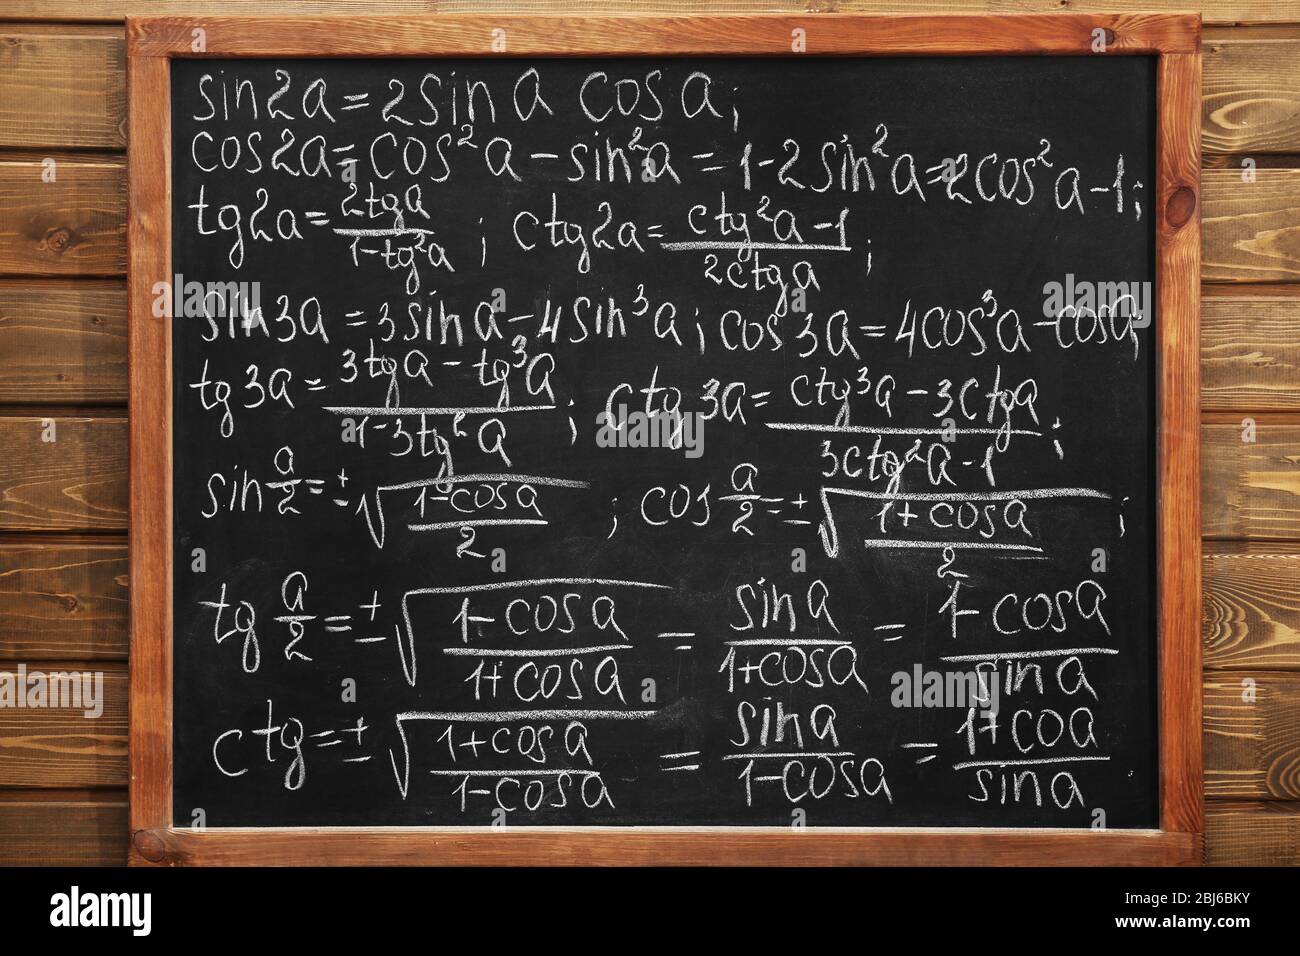 sin2a=2sina cosa;
cos2a=cos²a-sin²a=1-2sin²a=2cos²a-1;
tg2a=2tga/1-tg²a; ctg2a=ctg²a-1/2ctga;
sin3a=3sina-4sin³a; cos3a=4cos³a-cosa;
tg3a=3tga-tg³a/1-3tg²a; ctg3a=ctg³a-3ctga/3ctg²a-1;
sin a/2=±√1-cosa/2; cos a/2=±√1+cosa/2;
tg a/2=±√1-cosa/1+cosa=sina/1+cosa=1-cosa/sina
ctg=±√1+cosa/1-cosa=sina/1-cosa=1+coa/sina
alamy
Image ID: 2BJ6BKY
www.alamy.com